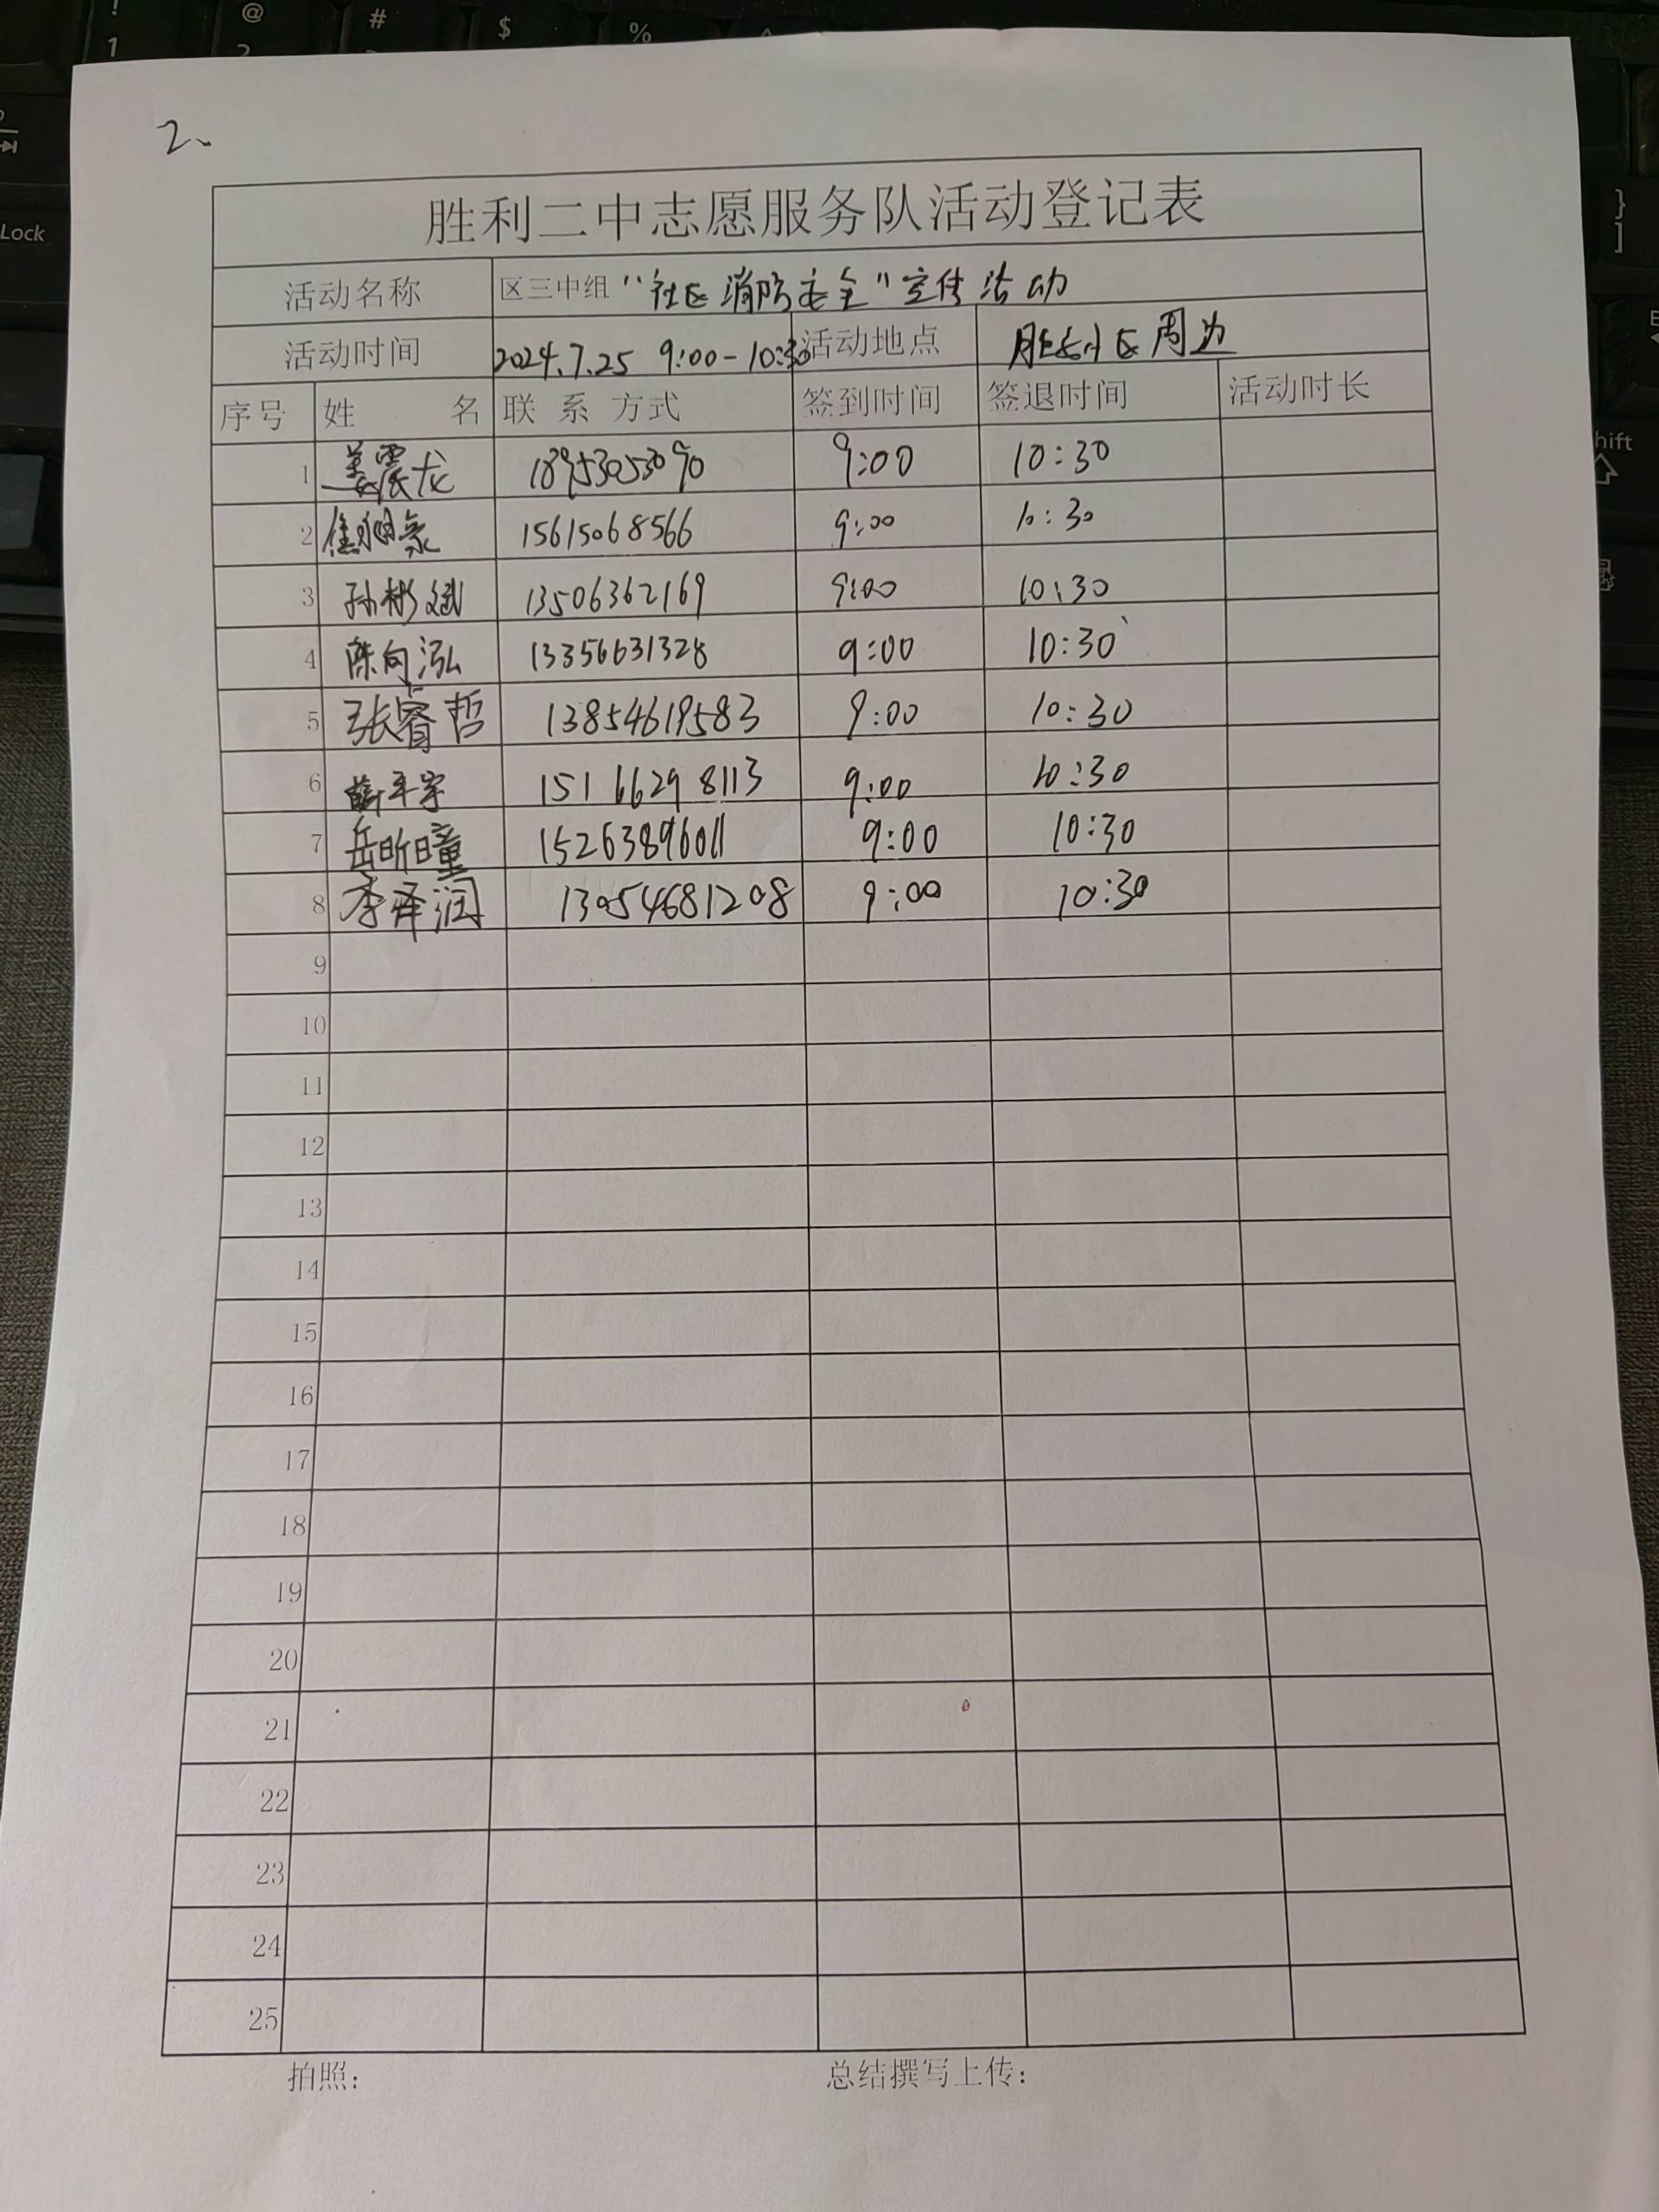 2、
胜利二中志愿服务队活动登记表
活动名称 区三中组“社区消防安全”宣传活动
活动时间 2024.7.25 9:00-10:30 活动地点 胜利小区周边
序号 姓 名 联 系 方式 签到时间 签退时间 活动时长
1 姜震龙 18953053090 9:00 10:30
2 15615068566 9:00 10:30
3 孙彬斌 13506362169 9:00 10:30
4 陈向泓 13356631328 9:00 10:30
5 张睿哲 13854619583 9:00 10:30
6 薛平宇 15166298113 9:00 10:30
7 岳昕曈 15263896011 9:00 10:30
8 李泽润 13054681208 9:00 10:30
9
10
11
12
13
14
15
16
17
18
19
20
21
22
23
24
25
拍照： 总结撰写上传：